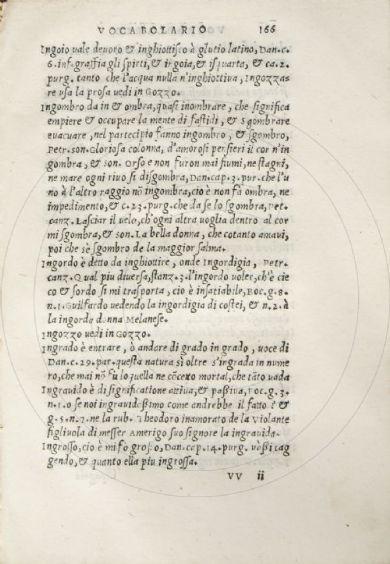 VOCABOLARIO 166
Ingoio vale deuoro & inghiottisco è glutio latino, Dan.c.
6.inf.graffia gli spirti, & ingoia, & isquarta, & ca.2.
purg. tanto che l'acqua nulla n'inghiottiua, Ingozza
re usa la prosa uedi in Gozzo.
Ingombro da in & ombra, quasi inombrare, che significa
empiere & occupare la mente di fastidi, & sgombrare
euacuare, nel partecipio fanno ingombro, & sgombro,
Petr.son.Gloriosa colonna, d'amorosi pensieri il cor n'in
gombra, & son. Orso e non furon mai fiumi, ne stagni,
ne mare ogni riuo si disgombra, Dan.cap.3.pur.che l'u
no à l'altro raggio nõ ingombra, cio è non fà ombra, ne
impedimento, & c.23.purg.che da se lo sgombra, Pet.
canz. Lasciar il uelo, ch'ogni altra uoglia dentro al cor
mi sgombra, & son. La bella donna, che cotanto amaui,
poi che sè sgombro de la maggior salma.
Ingordo è detto da inghiottire, onde Ingordigia, Petr.
canz. Qual piu diuersa, stanz.3.l'ingordo uoler, ch'è cie
co & sordo si mi trasporta, cio è insatiabile, Boc.g.8.
n.1.Guilfardo uedendo la ingordigia di costei, & n.2.à
la ingorda donna Melanese.
Ingozzo uedi in Gozzo.
Ingrado è entrare, ò andare di grado in grado, uoce di
Dan.c.29.par.questa natura sì oltre s'ingrada in nume
ro, che mai nõ fu loquella ne cõcetto mortal, che tãto uada
Ingrauido è di significatione attiua, & passiua, Boc.g.3.
n.1.o se noi ingrauidassimo come andrebbe il fatto? &
g.5.n.7.ne la rub. Theodoro inamorato de la Violante
figliuola di messer Amerigo suo signore la ingrauida.
Ingrosso, cio è mi fo grosso, Dan.cap.14.purg. uassi cag
gendo, & quanto ella piu ingrossa.
VV ii